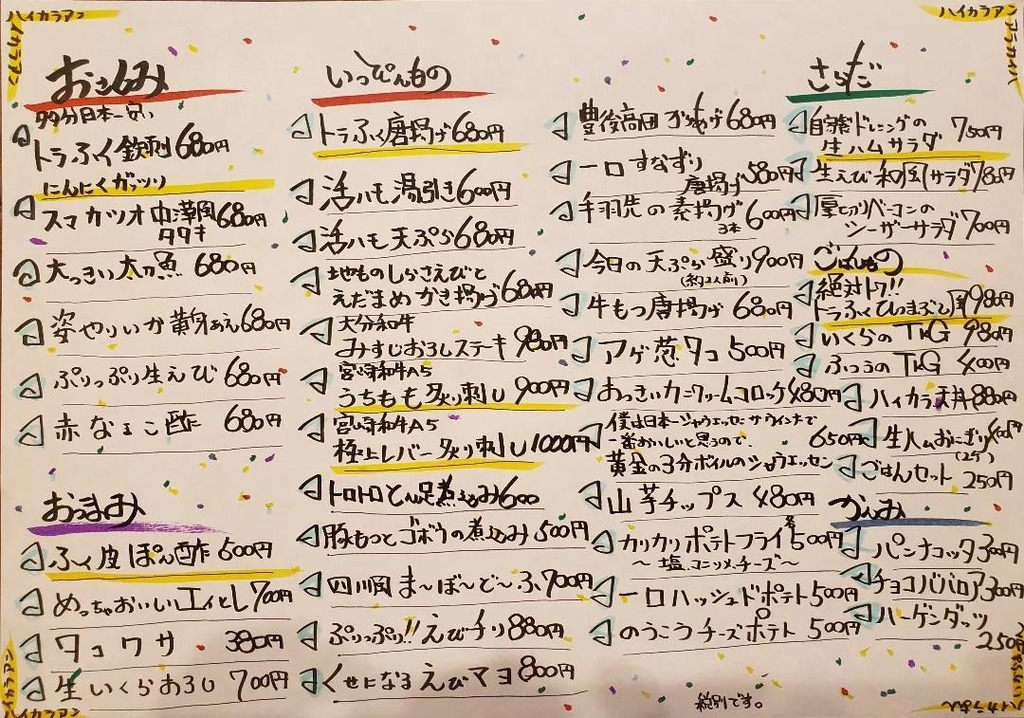 ハイカラアン
ハイカラアン
おさしみ
多分日本一安い
トラふく鉄刺680円
にんにくガッツリ
スマカツオ中華風680円
タタキ
大っきい太刀魚 680円
姿やりいか黄身あえ680円
ぷりっぷり生えび 680円
赤なまこ酢 680円
おつまみ
ふく皮ぽん酢 500円
めっちゃおいしいエイヒレ700円
タコワサ 380円
生いくらおろし 700円
いっぴんもの
トラふく唐揚げ680円
活ハモ湯引き600円
活ハモ天ぷら680円
地ものしらさえびと
えだまめかき揚げ680円
大分和牛
みすじおろしステーキ 980円
宮崎和牛A5
うちもも炙り刺し 900円
宮崎和牛A5
極上レバー炙り刺し1000円
トロトロとん足煮込み600
豚もつとゴボウの煮込み500円
四川風ま〜ぼ〜ど〜ふ700円
ぷりっぷり!!えびチリ880円
くせになるえびマヨ800円
豊後高田 680円
一口すなずり
唐揚げ580円
手羽先の素揚げ600円
3本
今日の天ぷら盛り900円
(約2人前)
牛もつ唐揚げ 680円
アゲ葱タコ 500円
おっきいカニクリームコロッケ480円
僕は日本一シャウエッセンでウインナで
一番おいしいと思うので、 650円
黄金の3分ボイルのシャウエッセン
山芋チップス 480円
カリカリポテトフライ各500円
〜塩、コンソメ、チーズ〜
一口ハッシュドポテト500円
のうこうチーズポテト 500円
税別です。
ハイカラアン
さらだ
自家製ドレッシングの 750円
生ハムサラダ
生えび和風サラダ780円
厚切りベーコンの
シーザーサラダ700円
ごはんもの
絶対トク!!
トラふくひつまぶし風980円
いくらのTKG 980円
ふつうのTKG 400円
ハイカラ天丼880円
生ハムおにぎり400円
(2ケ)
ごはんセット 250円
かんみ
パンナコッタ300円
チョコババロア300円
ハーゲンダッツ
250円